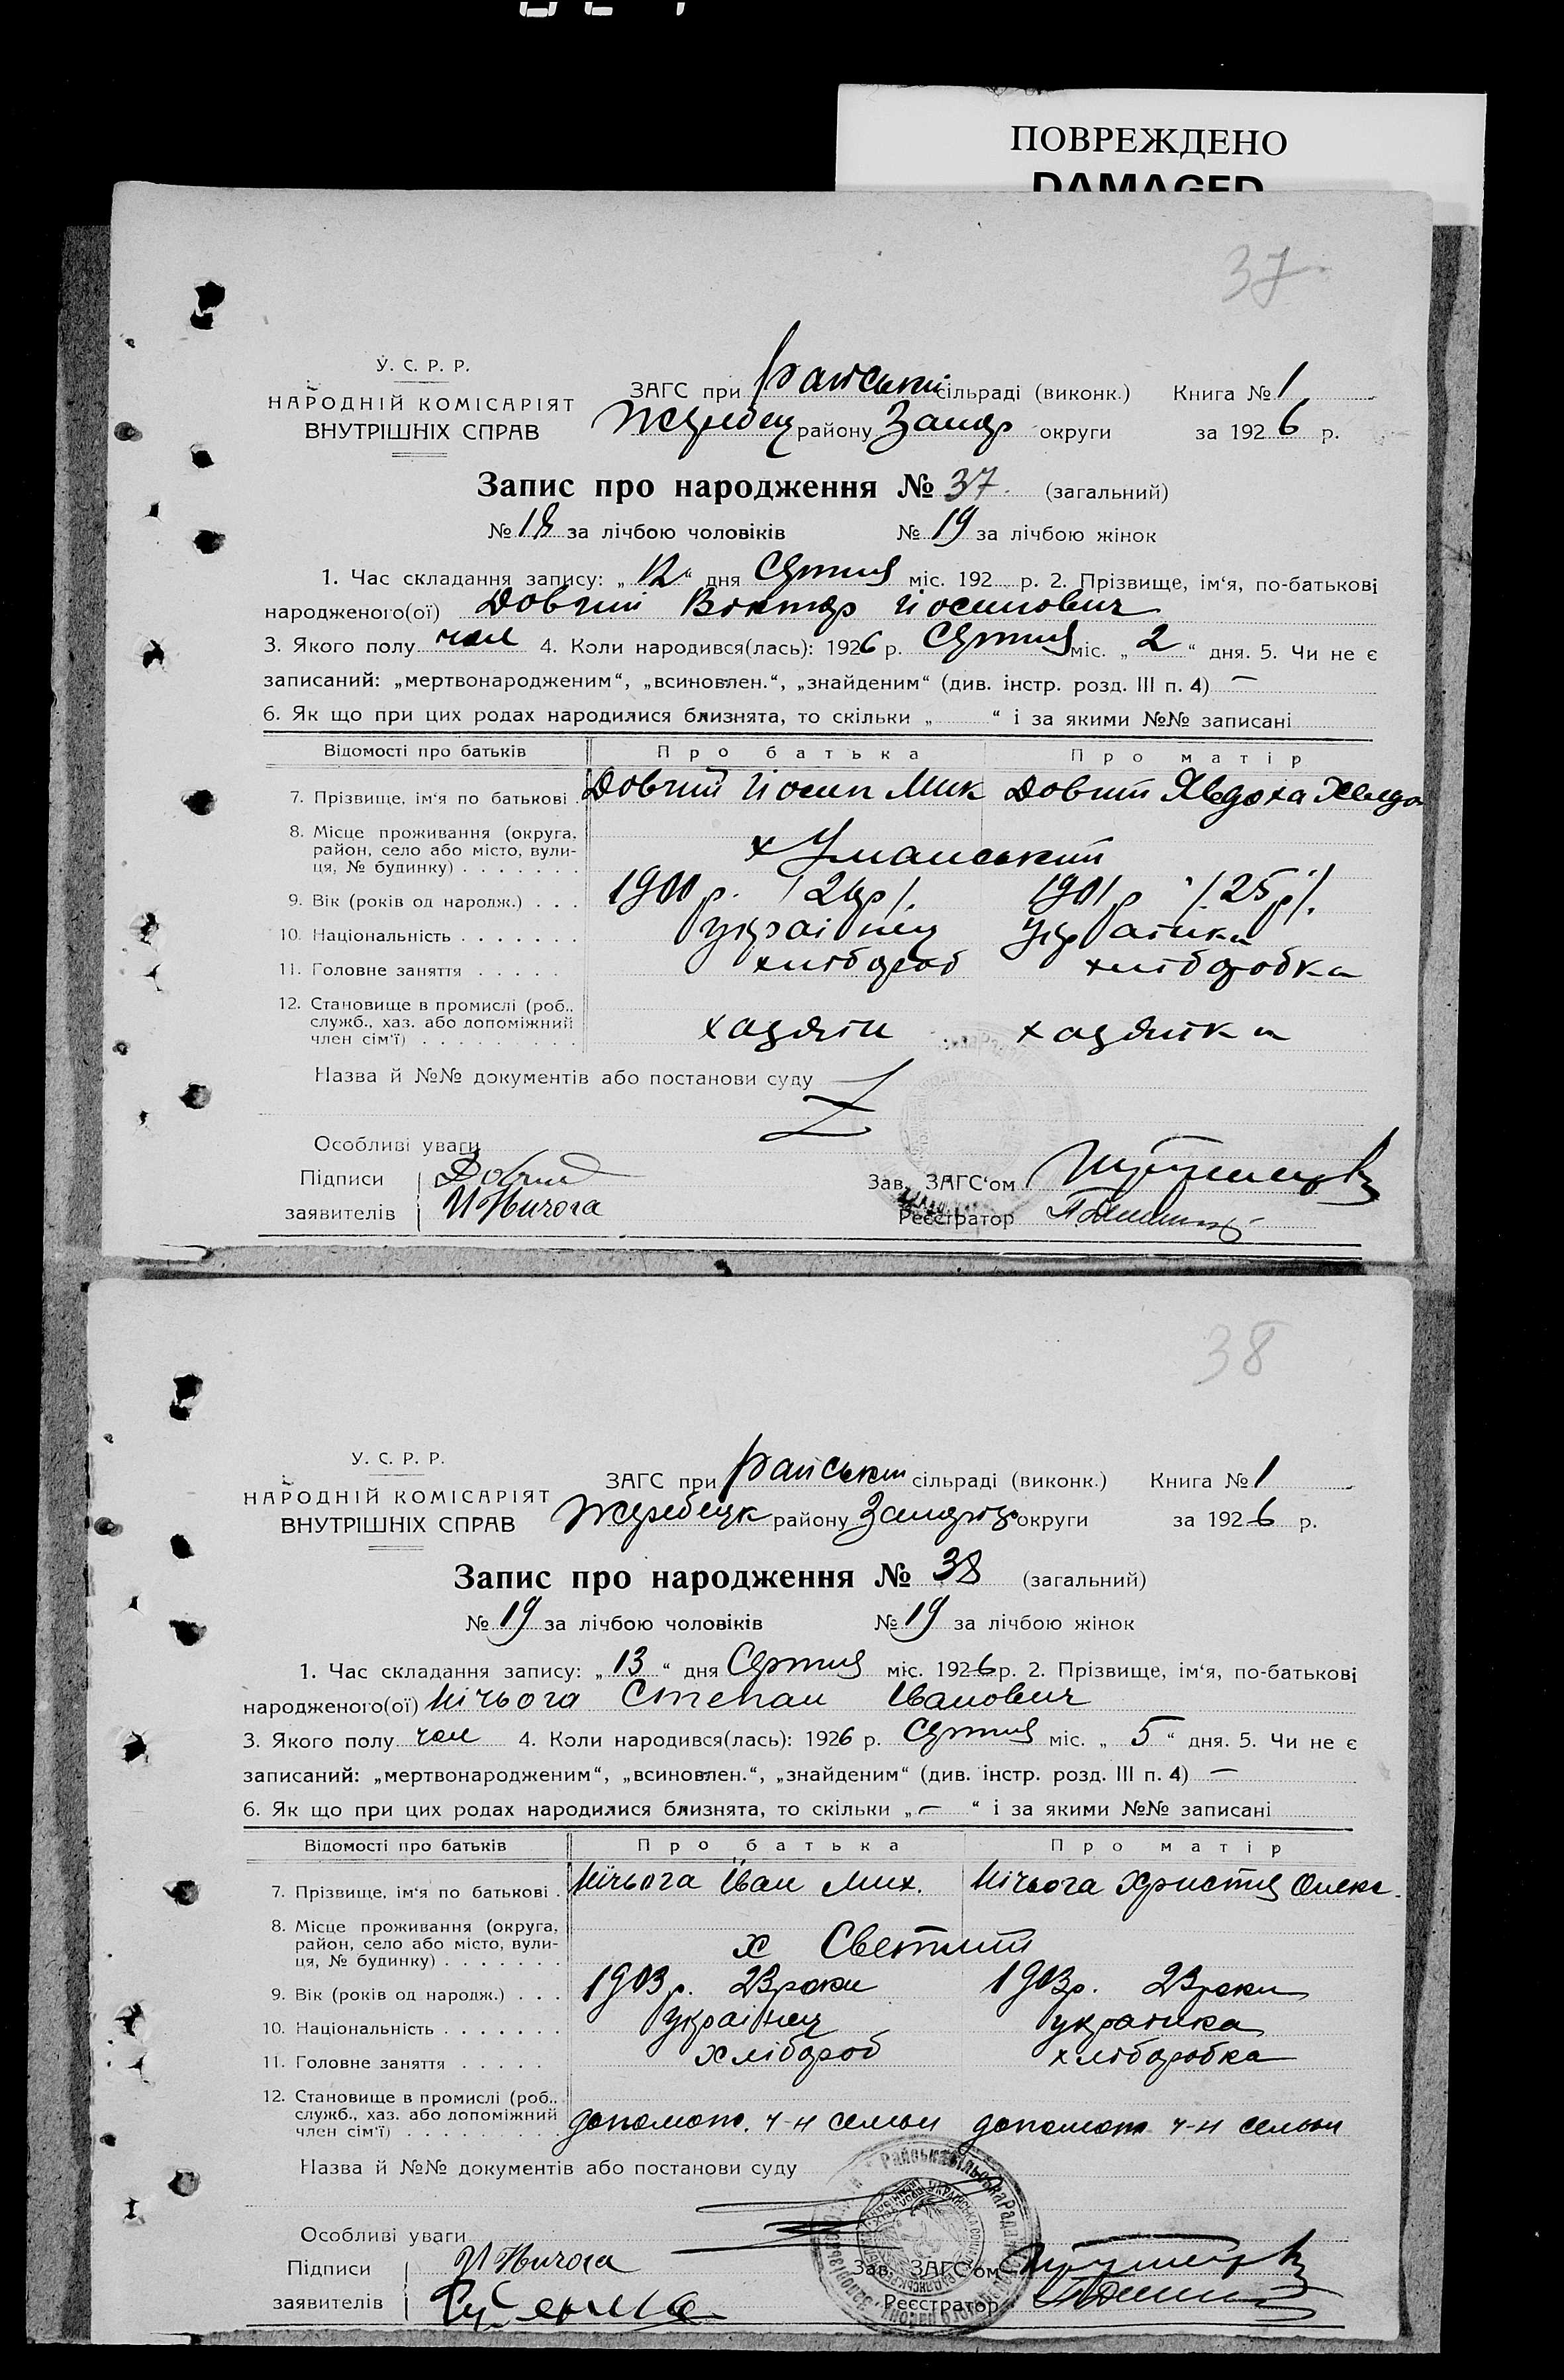 ПОВРЕЖДЕНО
DAMAGED
37
У. С. Р. Р.
НАРОДНІЙ КОМІСАРІЯТ
ВНУТРІШНІХ СПРАВ
ЗАГС при Райській сільраді (виконк.) Книга № 1
Жеребец району Запор округи за 1926 р.
Запис про народження № 37. (загальний)
№ 18 за лічбою чоловіків № 19 за лічбою жінок
1. Час складання запису: „12“ дня Серпня міс. 192 р. 2. Прізвище, ім‘я, по-батькові
народженого(ої) Довгий Віктор Йосипович
3. Якого полу чол 4. Коли народився(лась): 1926 р. Серпня міс. „2“ дня. 5. Чи не є
записаний: „мертвонародженим“, „всиновлен.“, „знайденим“ (див. інстр. розд. III п. 4) —
6. Як що при цих родах народилися близнята, то скільки „ “ і за якими №№ записані
Відомості про батьків Про батька Про матір
7. Прізвище, ім‘я по батькові Довгий Йосип Мик Довгий Явдоха
8. Місце проживання (округа, район, село або місто, вули- ця, № будинку) х Уманський
9. Вік (років од народж.) 1900 р. /26р/. 1901 р /25р/.
10. Національність українец украінка
11. Головне заняття хлібороб хліборобка
12. Становище в промислі (роб., служб., хаз. або допоміжний член сім‘ї) хазяїн хазяйка
Назва й №№ документів або постанови суду
Особливі уваги
Підписи Довгий Зав. ЗАГС‘ом
заявителів И Ничога Реєстратор
38
У. С. Р. Р.
НАРОДНІЙ КОМІСАРІЯТ
ВНУТРІШНІХ СПРАВ
ЗАГС при Райській сільраді (виконк.) Книга № 1
Жеребецк району Запоріз округи за 1926 р.
Запис про народження № 38 (загальний)
№ 19 за лічбою чоловіків № 19 за лічбою жінок
1. Час складання запису: „13“ дня Серпня міс. 1926 р. 2. Прізвище, ім‘я, по-батькові
народженого(ої) Нічьога Степан Іванович
3. Якого полу чол 4. Коли народився(лась): 1926 р. Серпня міс. „5“ дня. 5. Чи не є
записаний: „мертвонародженим“, „всиновлен.“, „знайденим“ (див. інстр. розд. III п. 4) —
6. Як що при цих родах народилися близнята, то скільки „—“ і за якими №№ записані
Відомості про батьків Про батька Про матір
7. Прізвище, ім‘я по батькові Нічьога Іван Мих. Нічьога Христия Олекс.
8. Місце проживання (округа, район, село або місто, вули- ця, № будинку) х Светлий
9. Вік (років од народж.) 1903 р. 23 роки 1903 р. 23 роки
10. Національність українец украінка
11. Головне заняття хлібороб хліборобка
12. Становище в промислі (роб., служб., хаз. або допоміжний член сім‘ї) допомож. ч-н семьи допомож ч-н семьи
Назва й №№ документів або постанови суду
Особливі уваги
Підписи И Ничога Зав. ЗАГС‘ом
заявителів Реєстратор